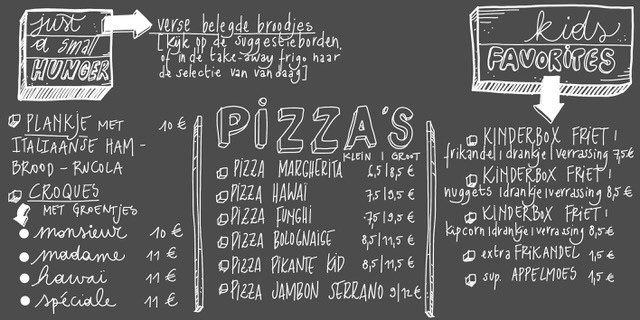 just
a small
HUNGER
verse belegde broodjes
[kijk op de suggestieborden,
of in de take-away frigo naar
de selectie van vandaag]
PLANKJE MET 10 €
ITALIAANSE HAM -
BROOD - RUCOLA
CROQUES
MET GROENTJES
monsieur 10 €
madame 11 €
hawaï 11 €
spéciale 11 €
PiZZA'S
KLEIN | GROOT
PIZZA MARGHERITA 6,5|8,5 €
PIZZA HAWAÏ 7,5|9,5 €
PIZZA FUNGHI 7,5|9,5 €
PIZZA BOLOGNAISE 8,5|11,5 €
PIZZA PIKANTE KIP 8,5|11,5 €
PIZZA JAMBON SERRANO 9|12 €
kids
FAVORITES
KINDERBOX FRIET |
frikandel | drankje | verrassing 7,5€
KINDERBOX FRIET |
nuggets | drankje | verrassing 8,5 €
KINDERBOX FRIET |
kipcorn | drankje | verrassing 8,5€
extra FRIKANDEL 1,5 €
sup. APPELMOES 1,5€